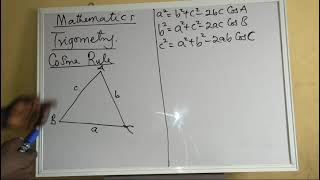 Mathematics
Trigometry.
Cosine Rule
A
c
b
B
a
C
a² = b² + c² - 2bc Cos A
b² = a² + c² - 2ac Cos B
c² = a² + b² - 2ab Cos C